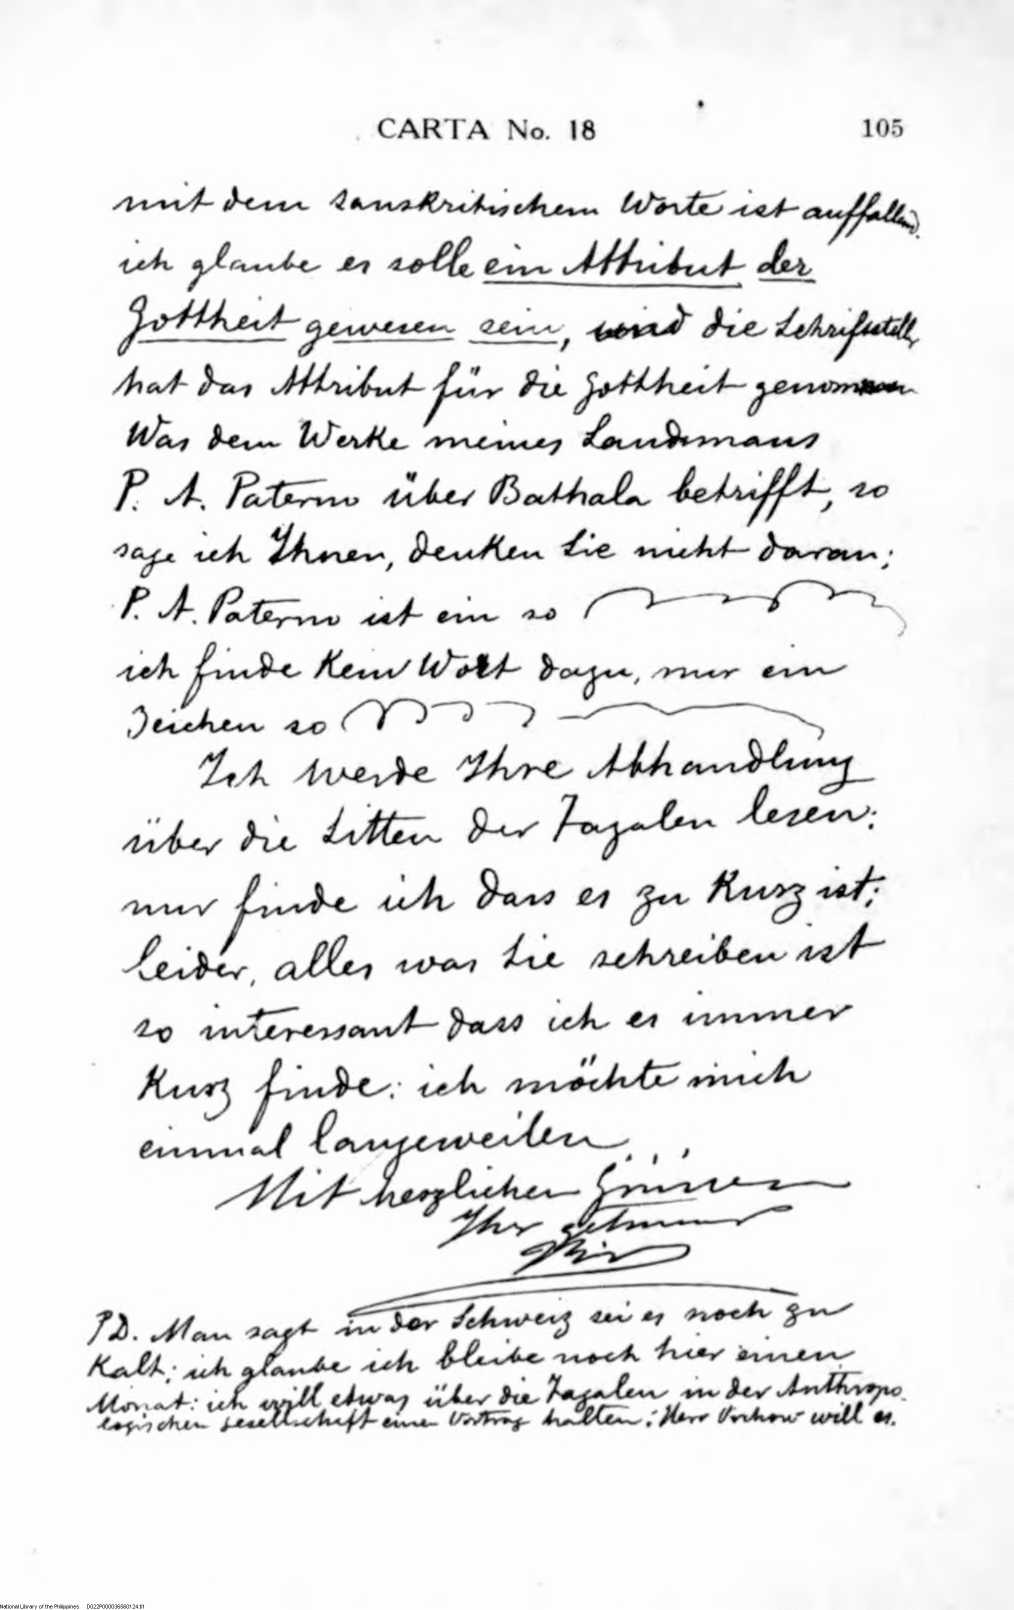 CARTA No. 18 105
mit dem sanskritischem Worte ist auffallend.
ich glaube es solle ein Attribut der
Gottheit gewesen sein, und die Schrifsteller
hat das Attribut für die Gottheit genommen
Was dem Werke meines Landsmans
P. A. Paterno über Bathala betrifft, so
sage ich Ihnen, denken Sie nicht daran;
P. A. Paterno ist ein so
ich finde kein Wort dazu, nur ein
Zeichen so
Ich werde Ihre Abhandlung
über die Sitten der Tagalen lesen;
nur finde ich dass es zu kurz ist;
leider, alles was Sie schreiben ist
so interessant dass ich es immer
kurz finde: ich möchte mich
einmal langeweilen...
Mit herzlichen Grüssen
Ihr
PD. Man sagt in der Schweiz sei es noch zu
kalt; ich glaube ich bleibe noch hier einen
Monat: ich will etwas über die Tagalen in der Anthropo-
logischen Gesellschaft einen Vortrag halten; Herr Virchow will es.
National Library of the Philippines